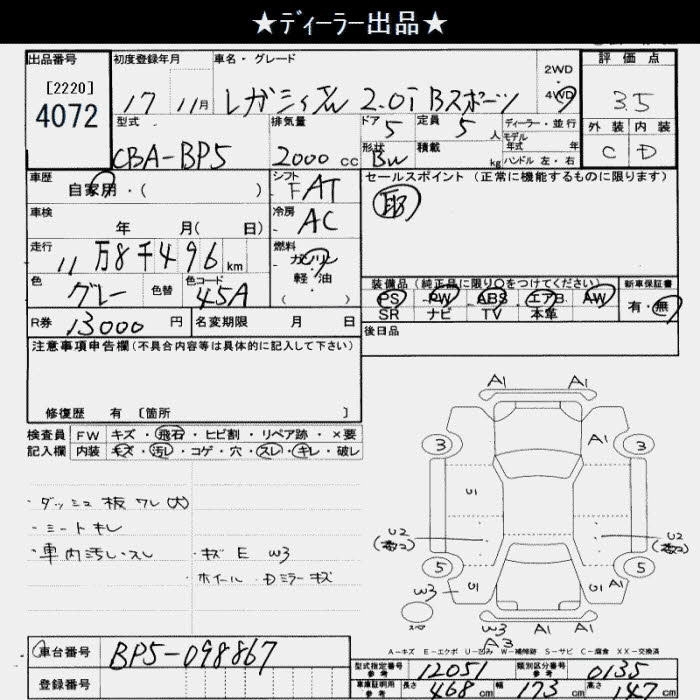 ★ディーラー出品★
出品番号
[2220]
4072
初度登録年月
17 11月
車名・グレード
レガシィ 2.0i Bスポーツ
2WD
4WD
評価点
3.5
型式
CBA-BP5
排気量
2000 cc
ドア 5
定員 5 人
形状 BW
積載 kg
ディーラー・並行
モデル
年式 年
ハンドル 左・右
外装 内装
C D
車歴
自家用・( )
シフト
FAT
セールスポイント (正常に機能するものに限ります)
車検
年 月( 日)
冷房
AC
走行
11万8千496 km
燃料
ガソリン
軽・油
( )
色
グレー
色替
色コード
45A
装備品(純正品に限り○をつけてください)
PS PW ABS エアB. AW
SR ナビ TV 本革
新車保証書
有・無
R券 13000 円
名変期限 月 日
後日品
注意事項申告欄(不具合内容等は具体的に記入して下さい)
修復歴 有 〔箇所 〕
検査員
記入欄
FW キズ・飛石・ヒビ割・リペア跡・×要
内装 キズ・汚レ・コゲ・穴・スレ・キレ・破レ
・ダッシュ板ワレ(大)
・シートキレ
・車内汚レ・スレ
・キズ E W3
・ホイール・Dミラーキズ
A1 A1
3 A1 3
U1
U2 U2
5 5
W3 U1 U1 A1
W3 A1
A3
A−キズ E−エクボ U−凹み W−補修跡 S−サビ C−腐食 XX−交換済
車台番号 BP5-098867
登録番号
型式指定番号
参考
12051
類別区分番号
参考
0135
車庫証明用
参考
長さ 468 cm 幅 173 cm 高さ 147 cm